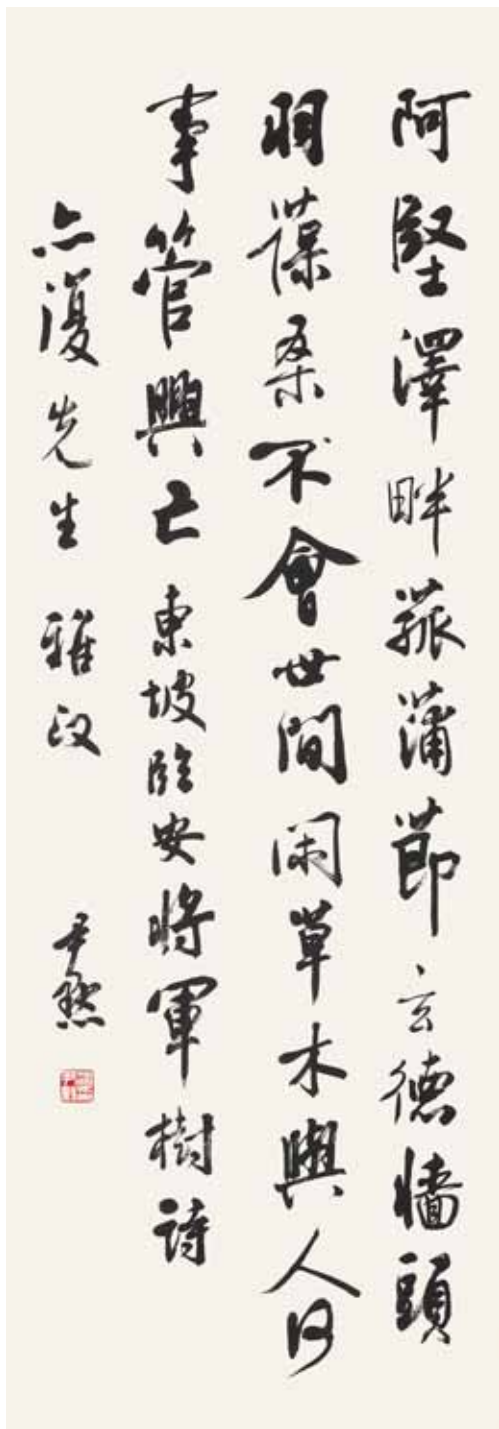 阿堅澤畔菰蒲節玄德墻頭
羽葆桑不會世間閑草木與人何
事管興亡 東坡臨安將軍樹詩
亦復先生 雅政 尹默